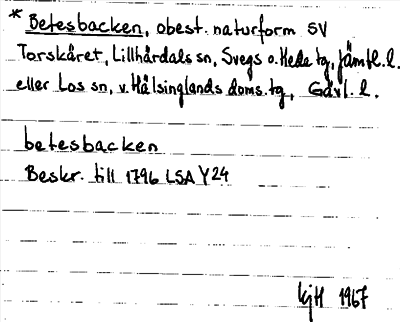 * Betesbacken, obest. naturform SV
Torskåret, Lillhärdals sn, Svegs o. Hede tg, Jämtl. l.
eller Los sn, v. Hälsinglands doms. tg, Gävl. l.
betesbacken
Beskr. till 1796 LSA Y24
GH 1967